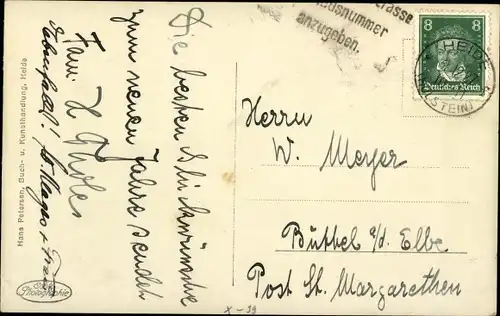 Die besten Glückwünsche
zum neuen Jahre sendet
Fam.
Ebenfalls!
Hans Petersen, Buch- u. Kunsthandlung, Heide
Photographie
Strasse
Hausnummer
anzugeben.
8 8
Deutsches Reich
HEIDE
(HOLSTEIN)
Herrn
W. Meyer
Büttel a/d. Elbe
Post St. Margarethen
X-39